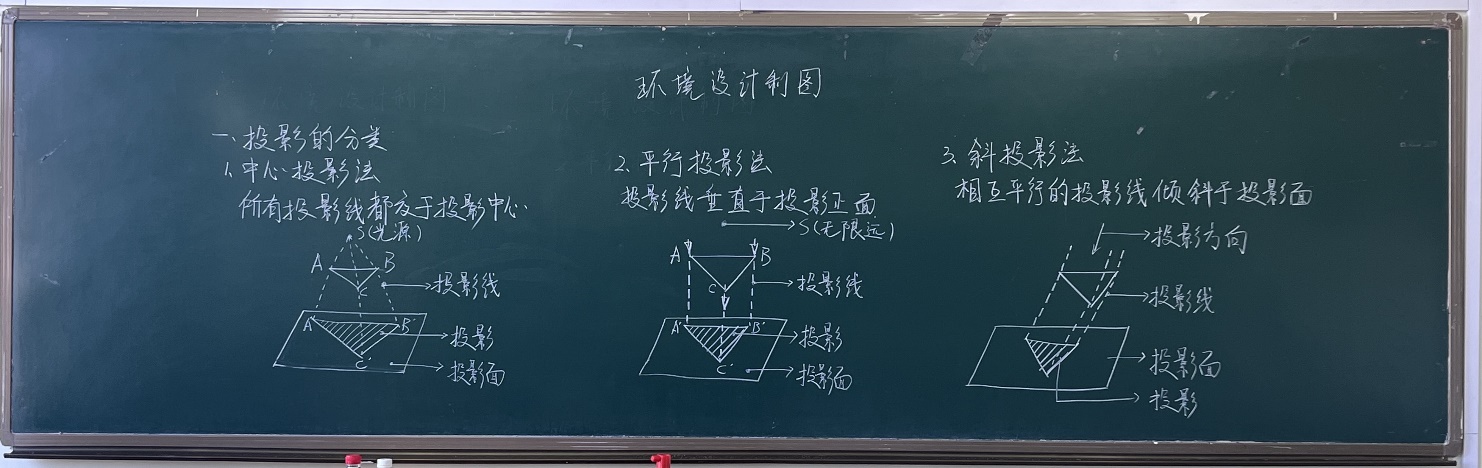 环境设计制图
一、投影的分类
1、中心投影法
所有投影线都交于投影中心
S(光源)
A
B
C
投影线
A'
B'
C'
投影
投影面
2、平行投影法
投影线垂直于投影正面
S(无限远)
A
B
C
投影线
A'
B'
C'
投影
投影面
3、斜投影法
相互平行的投影线倾斜于投影面
投影方向
投影线
投影面
投影